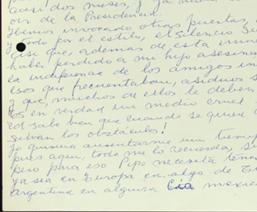 casi dos meses, y ya
de la Presidencia
otras puertas,
y todo por el estilo, el silencio
que, además de esta
hube perdido a mi hijo
la indiferencia de los amigos
esos que frecuentaban, asiduos
y que, muchos de ellos le debían
en verdad un medio cruel
sabe bien que cuando se quiere
salvan los obstáculos!
Yo quisiera ausentarme un tiempo
pues aquí, todo me lo recuerda,
pero para eso Pipo necesita
ya sea en Europa en algo de
Argentina en alguna Cía